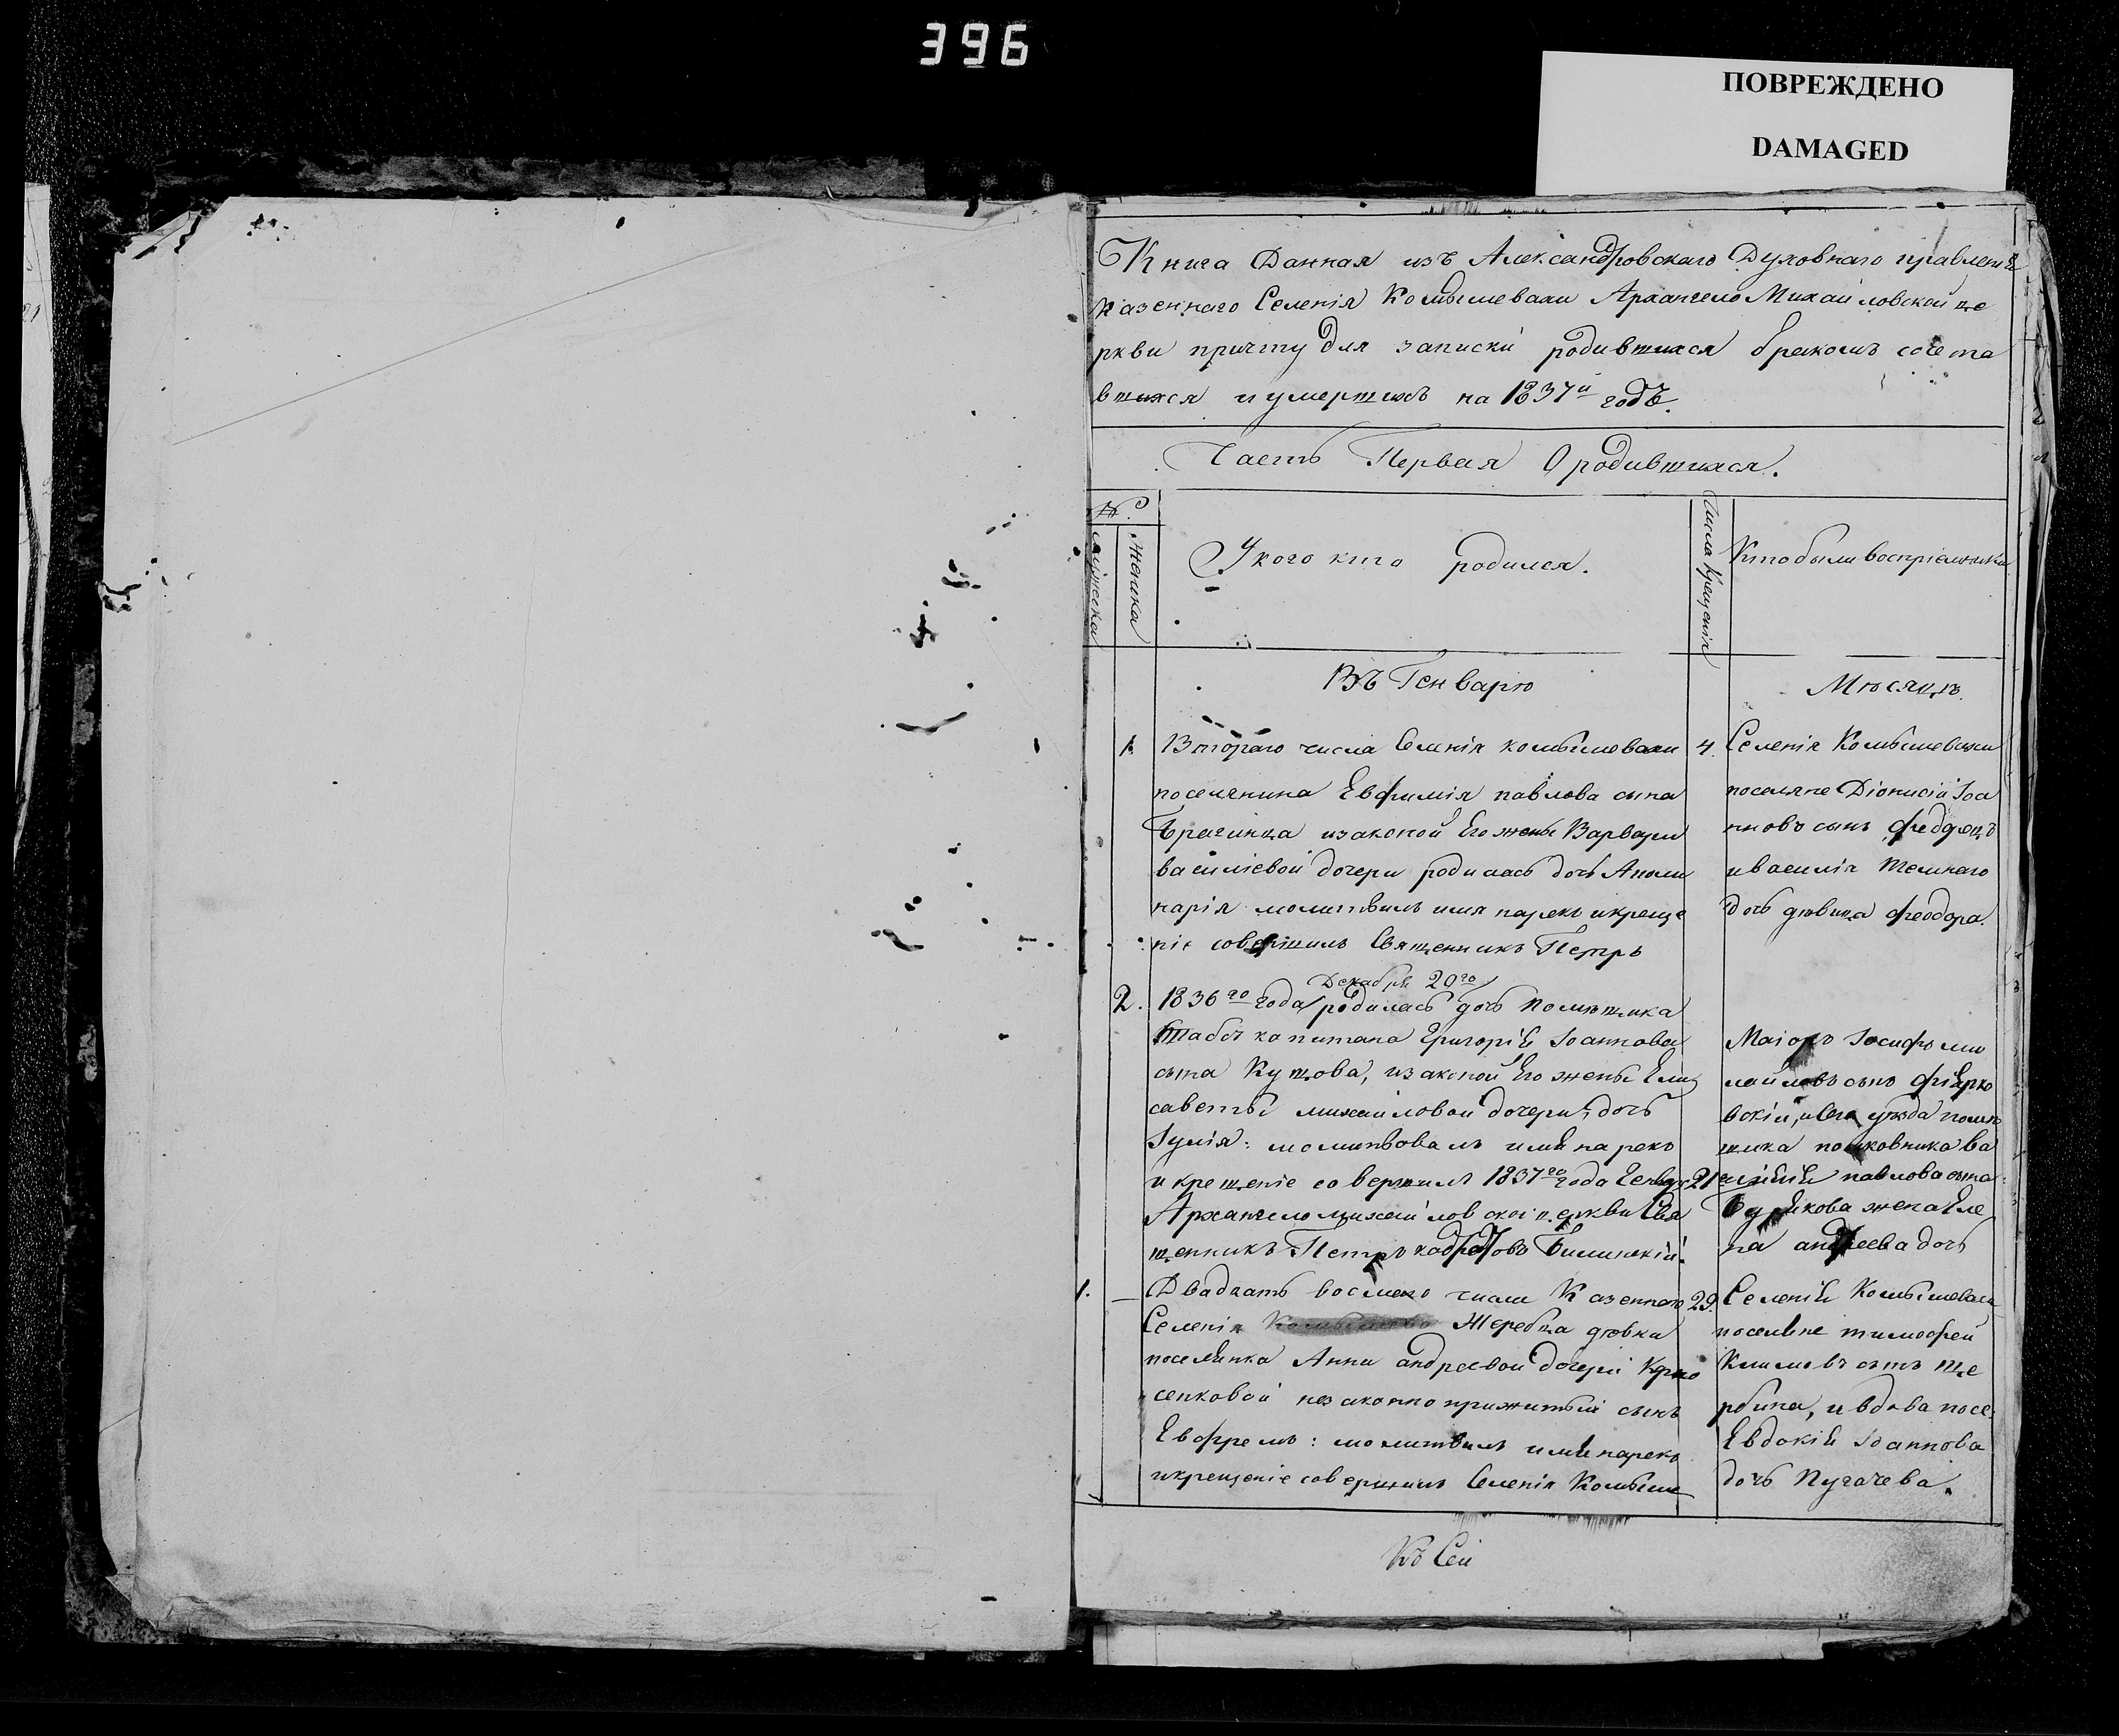 396
ПОВРЕЖДЕНО
DAMAGED
Книга Данная изъ Александровскаго Духовнаго правленія
казеннаго Селенія Комышевахи Архангело Михайловской це
ркви причту для записки родившихся бракомъ сочета
вшихся и умершихъ на 1837й годъ.
Часть Первая О родившихся.
№
мужеска
Женска
У кого кто родился.
Числа крещенія
Кто были воспріемники
Въ Генварѣ
Мѣсяцѣ.
1. Втораго числа Селенія комышевахи
поселянина Евфимія павлова сына
Брагинца изаконой Его жены Варвары
василіевой дочери родилась дочь Аполи
нарія молитвилъ имя нарекъ икреще
ніе совершилъ Священникъ Петръ
4. Селенія Комышевахи
поселяне Діонисій Іоа
нновъ сынъ
ивасилія Темнаго
дочь дѣвица феодора.
Декабря 20го
2. 1836го года родилась дочь Помѣщика
Штабсъ капитана Григорія Іоаннова
сына Куцова, изаконой Его жены Ели
саветы михайловой дочери, дочь
Іулія: молитвовалъ имя нарекъ
и крещеніе совершилъ 1837го года Генваря
Архангело михайловской церкви Свя
щенникъ Петръ Билинскій.
Маіоръ Іосифъ ми
хайловъ сынъ
уѣзда помѣ
щика полковника Ва
21 силія павлова сына
жена Еле
на андреева дочь
1. — Двадцать восмаго числа Казеннаго
Селенія Жеребца дѣвки
поселянка Анны андреевой дочери
сенковой незаконно прижитый сынъ
Евфремъ: молитвилъ имя нарекъ
икрещеніе совершилъ Селенія Комыше
29. Селенія Комышевахи
поселяне тимофей
Климовъ сынъ Ще
рбина, и вдова посе.
Евдокія Іоаннова
дочь Пугачева.
Къ Сей